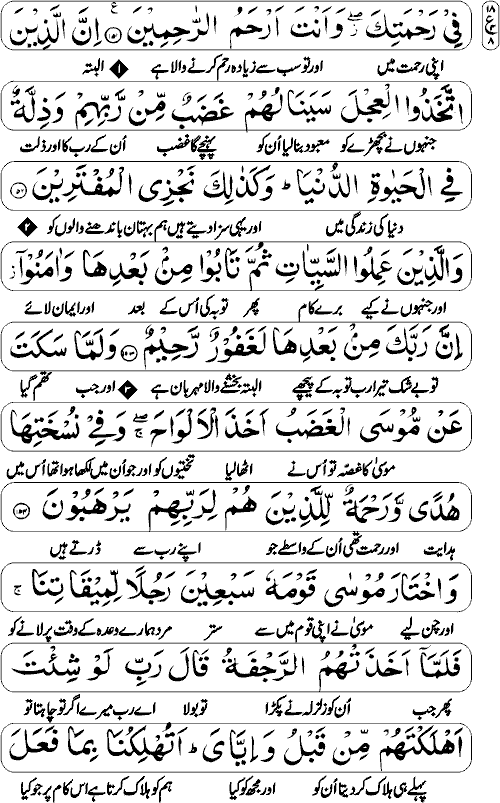 فِيْ رَحْمَتِكَ ۖ وَاَنْتَ اَرْحَمُ الرّٰحِمِيْنَ ﴿۱۵۱﴾ اِنَّ الَّذِيْنَ
اپنی رحمت میں اور تو سب سے زیادہ رحم کرنے والا ہے ۱ البتہ
اتَّخَذُوا الْعِجْلَ سَيَنَالُهُمْ غَضَبٌ مِّنْ رَّبِّهِمْ وَذِلَّةٌ
جنہوں نے بچھڑے کو معبود بنا لیا اُن کو پہنچے گا غضب اُن کے رب کا اور ذلت
فِي الْحَيٰوةِ الدُّنْيَا ؕ وَكَذٰلِكَ نَجْزِي الْمُفْتَرِيْنَ ﴿۱۵۲﴾
دنیا کی زندگی میں اور یہی سزا دیتے ہیں ہم بہتان باندھنے والوں کو ۲
وَالَّذِيْنَ عَمِلُوا السَّيِّاٰتِ ثُمَّ تَابُوْا مِنْۢ بَعْدِهَا وَاٰمَنُوْۤا ز
اور جنہوں نے کیے برے کام پھر توبہ کی اُس کے بعد اور ایمان لائے
اِنَّ رَبَّكَ مِنْۢ بَعْدِهَا لَغَفُوْرٌ رَّحِيْمٌ ﴿۱۵۳﴾ وَلَمَّا سَكَتَ
تو بے شک تیرا رب توبہ کے پیچھے البتہ بخشنے والا مہربان ہے ۳ اور جب تھم گیا
عَنْ مُّوْسَى الْغَضَبُ اَخَذَ الْاَلْوَاحَ ۖۚ وَفِيْ نُسْخَتِهَا
موسیٰ کا غصہ تو اُس نے اٹھا لیا تختیوں کو اور جو اُن میں لکھا ہوا تھا اُس میں
هُدًى وَّرَحْمَةٌ لِّلَّذِيْنَ هُمْ لِرَبِّهِمْ يَرْهَبُوْنَ ﴿۱۵۴﴾
ہدایت اور رحمت تھی اُن کے واسطے جو اپنے رب سے ڈرتے ہیں
وَاخْتَارَ مُوْسٰى قَوْمَهٗ سَبْعِيْنَ رَجُلًا لِّمِيْقَاتِنَا ۚ
اور چن لیے موسیٰ نے اپنی قوم میں سے ستر مرد ہمارے وعدہ کے وقت پر لانے کو
فَلَمَّاۤ اَخَذَتْهُمُ الرَّجْفَةُ قَالَ رَبِّ لَوْ شِئْتَ
پھر جب اُن کو زلزلہ نے پکڑا تو بولا اے رب میرے اگر تو چاہتا تو
اَهْلَكْتَهُمْ مِّنْ قَبْلُ وَاِيَّايَ ؕ اَتُهْلِكُنَا بِمَا فَعَلَ
پہلے ہی ہلاک کر دیتا اُن کو اور مجھ کو کیا ہم کو ہلاک کرتا ہے اس کام پر جو کیا